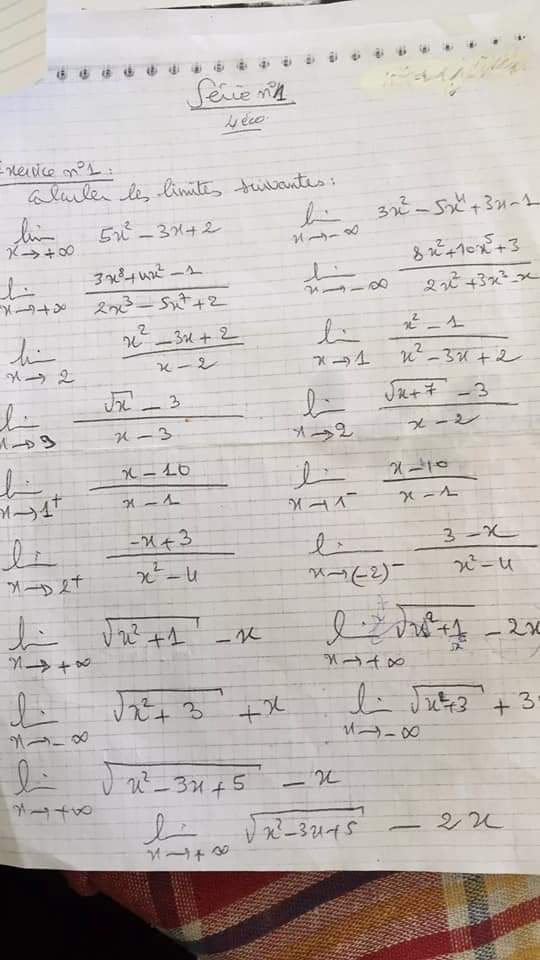 Série n°1
4éco
Exercice n°1 :
Calculer les limites suivantes :
lim x→+∞ 5x² - 3x + 2    lim x→-∞ 3x² - 5x⁴ + 3x - 1
lim x→+∞ (3x⁸ + 4x² - 1)/(2x³ - 5x⁷ + 2)    lim x→-∞ (8x² + 10x⁵ + 3)/(2x² + 3x² - x)
lim x→2 (x² - 3x + 2)/(x - 2)    lim x→1 (x² - 1)/(x² - 3x + 2)
lim x→9 (√x - 3)/(x - 3)    lim x→2 (√(x+7) - 3)/(x - 2)
lim x→1⁺ (x - 10)/(x - 1)    lim x→1⁻ (x - 10)/(x - 1)
lim x→2⁺ (-x + 3)/(x² - 4)    lim x→(-2)⁻ (3 - x)/(x² - 4)
lim x→+∞ √(x² + 1) - x    lim x→+∞ √(x² + 1) - 2x
lim x→-∞ √(x² + 3) + x    lim x→-∞ √(x² + 3) + 3
lim x→+∞ √(x² - 3x + 5) - x
lim x→+∞ √(x² - 3x + 5) - 2x